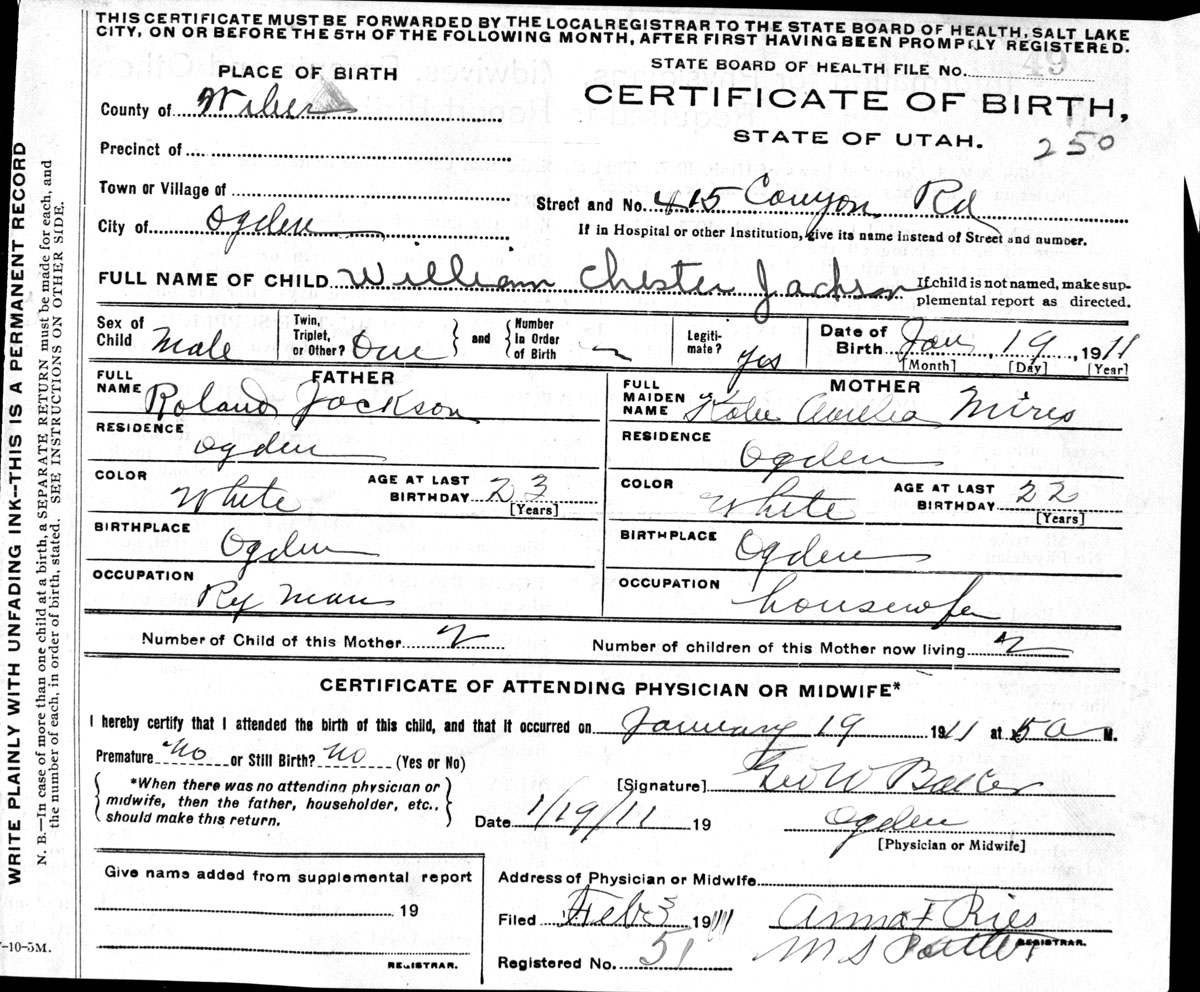 THIS CERTIFICATE MUST BE FORWARDED BY THE LOCALREGISTRAR TO THE STATE BOARD OF HEALTH, SALT LAKE
CITY, ON OR BEFORE THE 5TH OF THE FOLLOWING MONTH, AFTER FIRST HAVING BEEN PROMPTLY REGISTERED.
STATE BOARD OF HEALTH FILE No. 49
PLACE OF BIRTH
CERTIFICATE OF BIRTH,
County of Weber
STATE OF UTAH.
250
Precinct of
Town or Village of
Street and No. 415 Canyon Rd
City of Ogden
If in Hospital or other Institution, give its name instead of Street and number.
FULL NAME OF CHILD William Chester Jackson
If child is not named, make sup-
plemental report as directed.
Sex of Child Male
Twin, Triplet, or Other? One
and
Number in Order of Birth
Legiti-mate? Yes
Date of Birth Jan, 19, 1911
[Month] [Day] [Year]
FATHER
FULL NAME Roland Jackson
RESIDENCE Ogden
COLOR White
AGE AT LAST BIRTHDAY 23
[Years]
BIRTHPLACE Ogden
OCCUPATION Ry Man
MOTHER
FULL MAIDEN NAME Aurelia Mires
RESIDENCE Ogden
COLOR White
AGE AT LAST BIRTHDAY 22
[Years]
BIRTHPLACE Ogden
OCCUPATION housewife
Number of Child of this Mother 2
Number of children of this Mother now living 2
CERTIFICATE OF ATTENDING PHYSICIAN OR MIDWIFE*
I hereby certify that I attended the birth of this child, and that it occurred on January 19 1911 at 5 a M.
Premature No or Still Birth? No (Yes or No)
*When there was no attending physician or
midwife, then the father, householder, etc.,
should make this return.
[Signature] Geo W Baker
Date 1/19/11 19
Ogden
[Physician or Midwife]
Give name added from supplemental report
19
REGISTRAR.
Address of Physician or Midwife
Filed Feb 3 1911
Anna F Ries
REGISTRAR.
M S
Registered No. 51
WRITE PLAINLY WITH UNFADING INK--THIS IS A PERMANENT RECORD
N. B.—In case of more than one child at a birth, a SEPARATE RETURN must be made for each, and
the number of each, in order of birth, stated. SEE INSTRUCTIONS ON OTHER SIDE.
-10-5M.